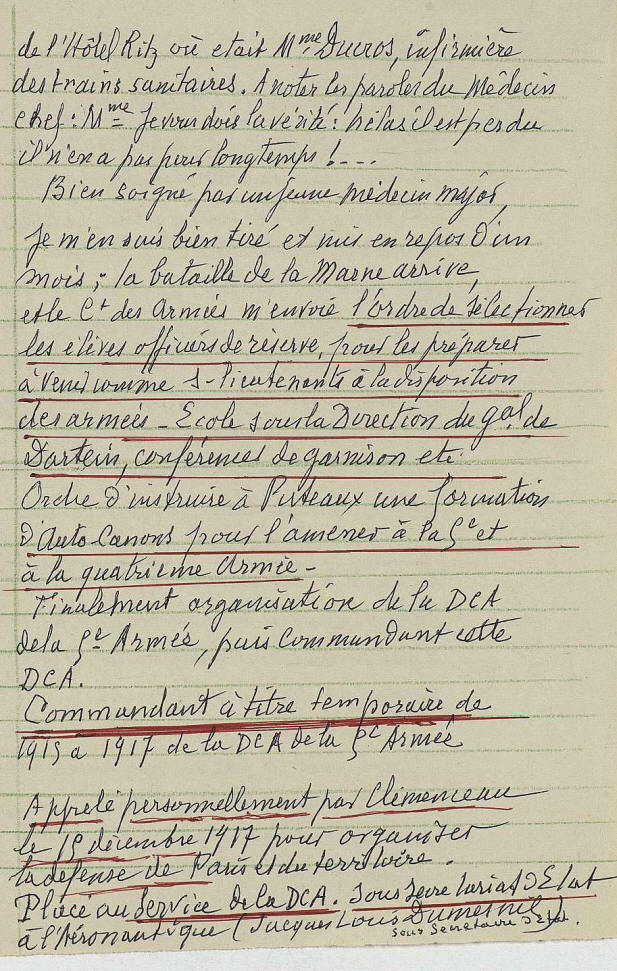 de l'Hôtel Ritz où etait M^me Ducros, infirmière
des trains sanitaires. A noter les paroles du Médecin
chef : M^me Je vous dois la vérité : hélas il est perdu
il n'en a pas pour longtemps !---
Bien soigné par un jeune médecin major,
Je m'en suis bien tiré et mis en repos d'un
mois ; la bataille de la Marne arrive,
et le C^t des Armées m'envoie l'ordre de sélectionner
les élèves officiers de réserve, pour les préparer
à venir comme S-lieutenants à la disposition
des armées - Ecole sous la Direction du g^al de
Dartein, conférences de garnison etc.
Ordre d'instruire à Puteaux une formation
d'Auto-Canons pour l'amener à la 5^e et
à la quatrième Armée -
Finalement organisation de la DCA
de la 5^e Armée, puis Commandant cette
DCA.
Commandant à titre temporaire de
1915 à 1917 de la DCA de la 5^e Armée
Appelé personnellement par Clémenceau
le 15 décembre 1917 pour organiser
la défense de Paris et du territoire.
Placé au Service de la DCA. Sous Secretariat d'Etat
à l'Aéronautique (Jacques Louis Dumesnil)
sous Secretaire d'Etat.